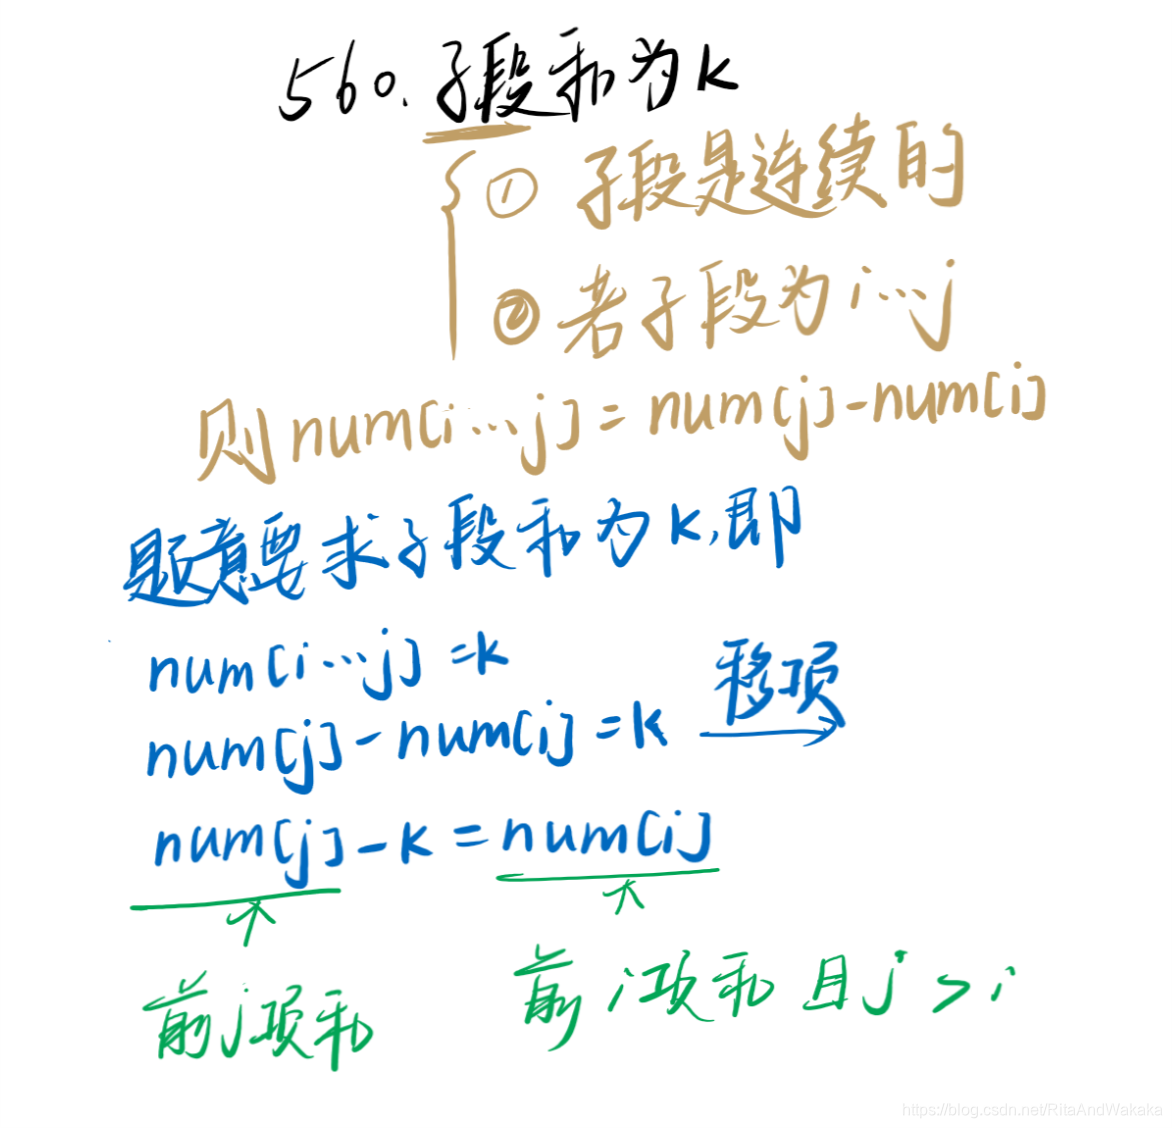 560. 子段和为k
① 子段是连续的
② 若子段为i...j
则num[i...j]=num[j]-num[i]
题意要求子段和为k,即
num[i...j]=k
num[j]-num[i]=k 移项
num[j]-k=num[i]
前j项和 前i项和且j>i
https://blog.csdn.net/RitaAndWakaka